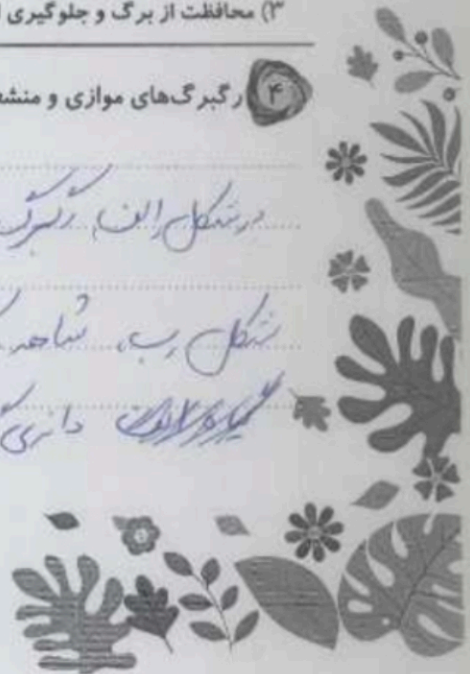 ۳) محافظت از برگ و جلوگیری
۴ رگبرگ‌های موازی و منشع
در شکل الف، رگبرگ
شکل ب، شاهد